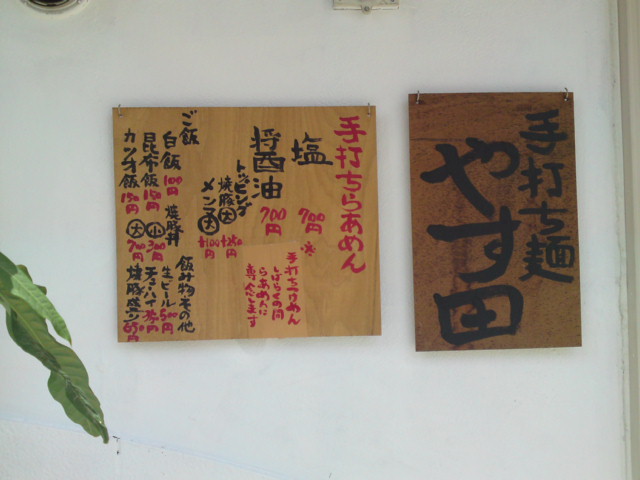 手打ち麺
やす田
手打ちらぁめん
塩 700円
醤油 700円
トッピング
焼豚 大 +250円
メンマ 大 +100円
※手打ちつけめん
しばらくの間
らぁめんに
専念します
ご飯
白飯 100円
昆布飯 150円
カツオ飯 150円
焼豚丼
小 300円
大 700円
飲み物その他
生ビール 500円
チューハイ
焼豚盛り 650円